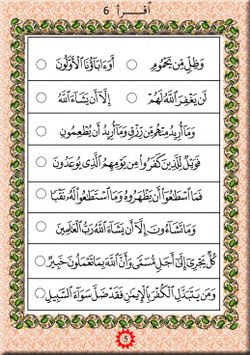 أقرأ 6
وَظِلٍّ مِّن يَحْمُومٍ ○ أَوَءَابَآؤُنَا ٱلْأَوَّلُونَ ○
لَن يَغْفِرَ ٱللَّهُ لَهُمْ ○ إِلَّآ أَن يَشَآءَ ٱللَّهُ ○
وَمَآ أُرِيدُ مِنْهُم مِّن رِّزْقٍ وَمَآ أُرِيدُ أَن يُطْعِمُونِ ○
فَوَيْلٌ لِّلَّذِينَ كَفَرُوا۟ مِن يَوْمِهِمُ ٱلَّذِى يُوعَدُونَ ○
فَمَا ٱسْطَٰعُوٓا۟ أَن يَظْهَرُوهُ وَمَا ٱسْتَطَٰعُوا۟ لَهُۥ نَقْبًا ○
وَمَا تَشَآءُونَ إِلَّآ أَن يَشَآءَ ٱللَّهُ رَبُّ ٱلْعَٰلَمِينَ ○
كُلٌّ يَجْرِىٓ إِلَىٰٓ أَجَلٍ مُّسَمًّى وَأَنَّ ٱللَّهَ بِمَا تَعْمَلُونَ خَبِيرٌ ○
وَمَن يَتَبَدَّلِ ٱلْكُفْرَ بِٱلْإِيمَٰنِ فَقَدْ ضَلَّ سَوَآءَ ٱلسَّبِيلِ ○